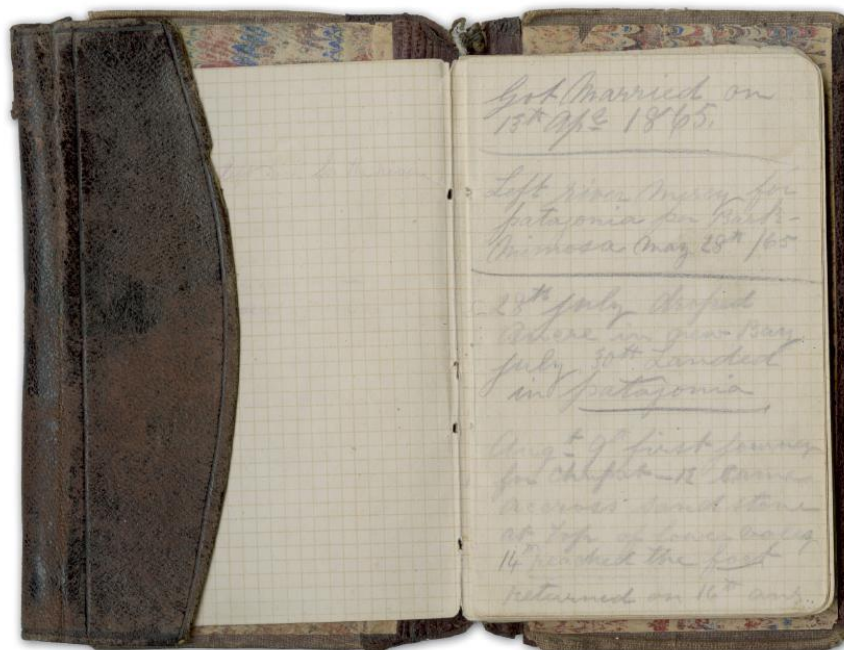 Got Married on
13th Apl 1865.
Left river Mersy for
patagonia per Bark
Mimosa May 28th /65
28th july droped
Ancre in new Bay
july 30th Landed
in patagonia
Augt 9th first journey
for Chupat – 12 came
accross sand stone
at top of lower valey
14th reached the fort
returned on 16th aug